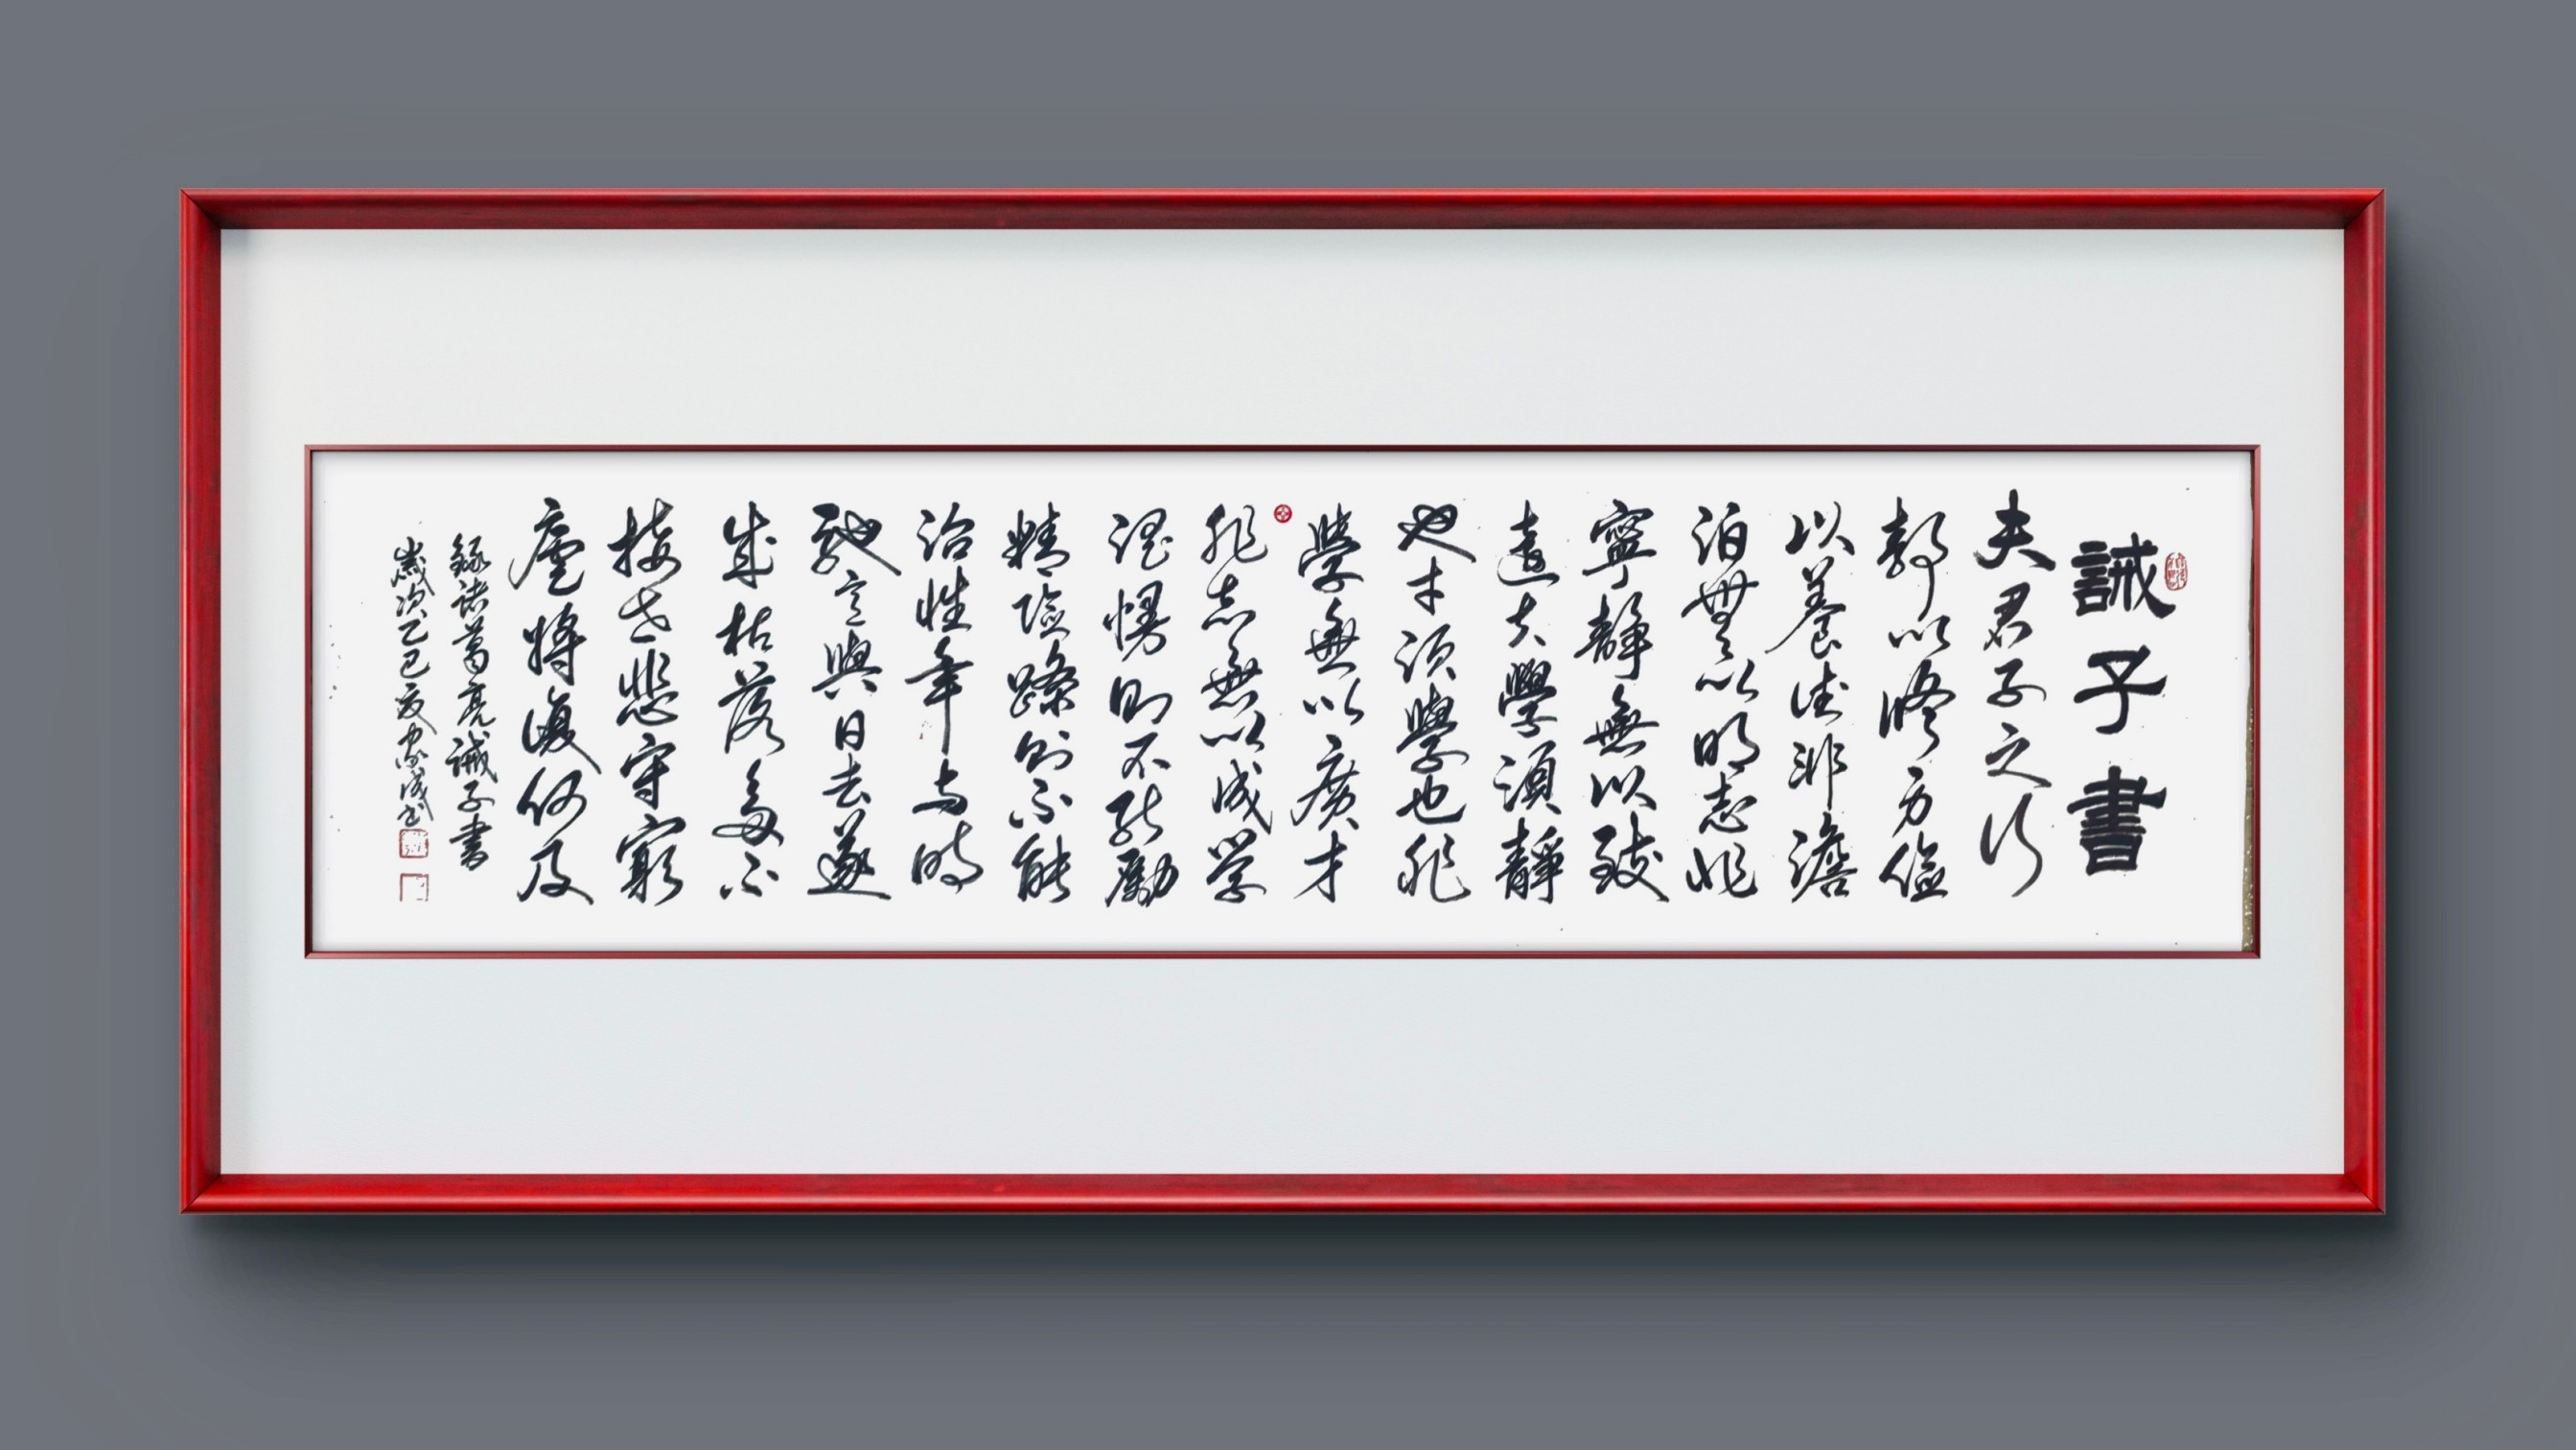 誡子書
夫君子之行
靜以修身儉
以養德非澹
泊無以明志非
寧靜無以致
遠夫學須靜
也才須學也非
學無以廣才
非志無以成学
淫慢則不能勵
精險躁則不能
治性年与時
馳意與日去遂
成枯落多不
接世悲守窮
廬將復何及
錄諸葛亮誡子書
歲次乙巳夏